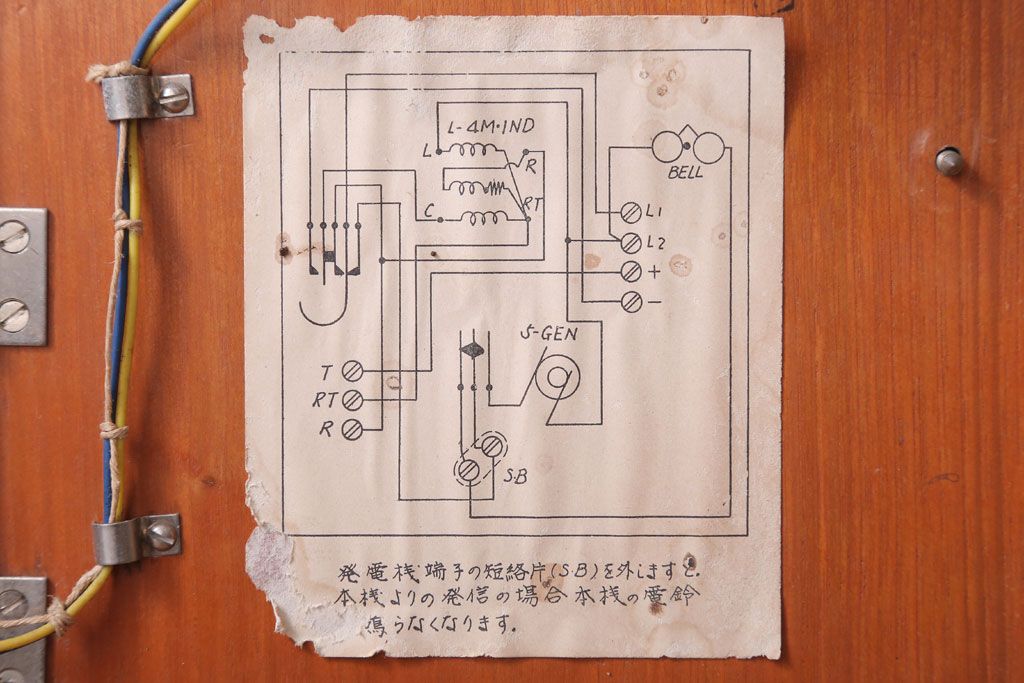 L-4M·IND
L
R
RT
C
BELL
L1
L2
+
−
5-GEN
T
RT
R
S·B
発電桟端子の短絡片(S·B)を外しますと.
本桟よりの発信の場合本桟の電鈴
鳴らなくなります.